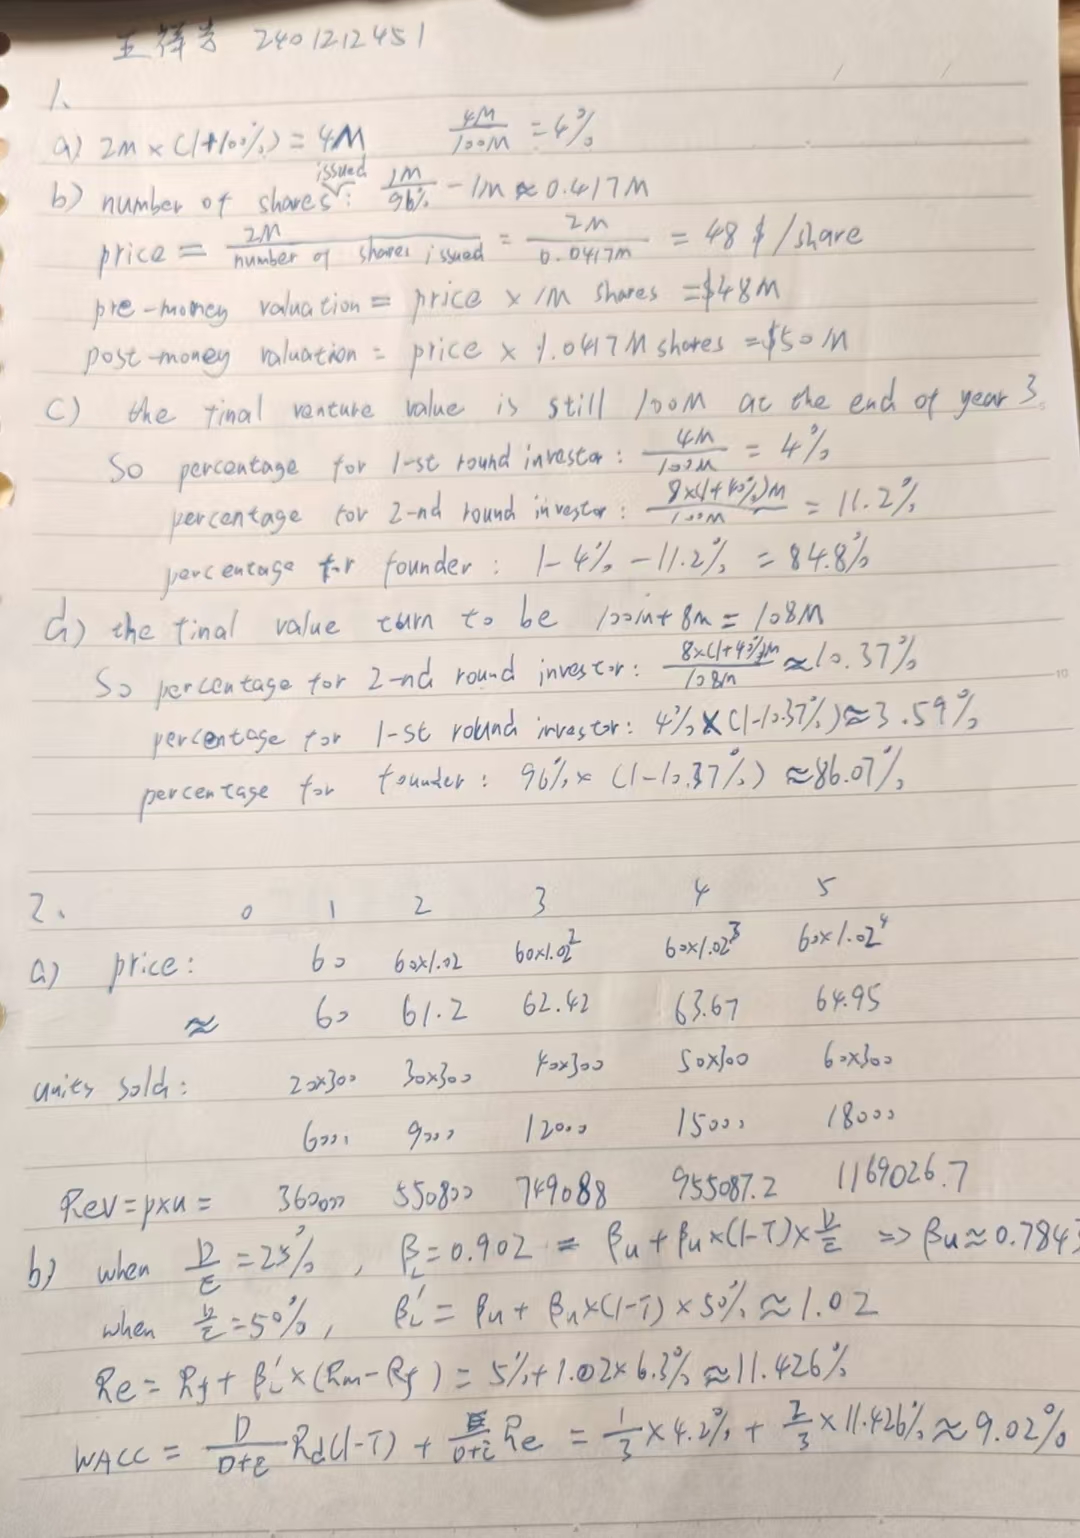 王祥吉 2401212451
1.
a) 2M × (1+100%) = 4M 4M/100M = 4%
b) number of shares issued: 1M/96% - 1M ≈ 0.417M
price = 2M/number of shares issued = 2M/0.0417M = 48 $/share
pre-money valuation = price × 1M shares = $48M
post-money valuation = price × 1.0417M shares = $50M
c) the final venture value is still 100M at the end of year 3.
So percentage for 1-st round investor: 4M/100M = 4%
percentage for 2-nd round investor: 8×(1+40%)M/100M = 11.2%
percentage for founder: 1-4%-11.2% = 84.8%
d) the final value turn to be 100M+8M = 108M
So percentage for 2-nd round investor: 8×(1+40%)M/108M ≈ 10.37%
percentage for 1-st round investor: 4% × (1-10.37%) ≈ 3.59%
percentage for founder: 96% × (1-10.37%) ≈ 86.07%
2. 0 1 2 3 4 5
a) price: 60 60×1.02 60×1.02² 60×1.02³ 60×1.02⁴
≈ 60 61.2 62.42 63.67 64.95
units sold: 20×300 30×300 40×300 50×300 60×300
6000 9000 12000 15000 18000
Rev=p×u= 360000 550800 749088 955087.2 1169026.7
b) when D/E = 25%, β_L = 0.902 = βu + βu×(1-T)×D/E => βu ≈ 0.7843
when D/E = 50%, β_L' = βu + βu×(1-T)×50% ≈ 1.02
Re = Rf + β_L'×(Rm-Rf) = 5%+1.02×6.3% ≈ 11.426%
WACC = D/(D+E) Rd(1-T) + E/(D+E) Re = 1/3 × 4.2% + 2/3 × 11.426% ≈ 9.02%